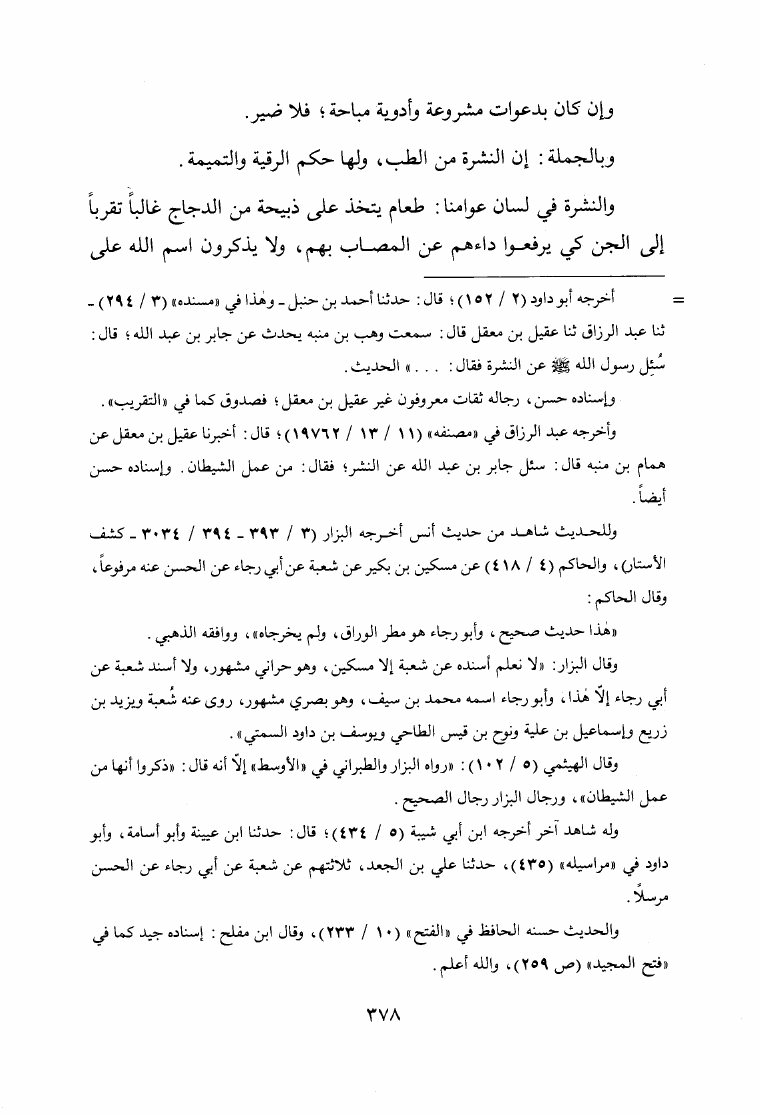 وإن كان بدعوات مشروعة وأدوية مباحة؛ فلا ضير.
وبالجملة: إن النشرة من الطب، ولها حكم الرقية والتميمة.
والنشرة في لسان عوامنا: طعام يتخذ على ذبيحة من الدجاج غالباً تقرباً
إلى الجن كي يرفعـوا داءهم عن المصـاب بهم، ولا يذكرون اسم الله على
= أخرجه أبو داود (٢ / ١٥٢)؛ قال: حدثنا أحمد بن حنبل ـ وهٰذا في «مسنده» (٣ / ٢٩٤) ـ
ثنا عبد الرزاق ثنا عقيل بن معقل قال: سمعت وهب بن منبه يحدث عن جابر بن عبد الله؛ قال:
سُئِل رسول الله ﷺ عن النشرة فقال: . . . » الحديث.
وإسناده حسن، رجاله ثقات معروفون غير عقيل بن معقل؛ فصدوق كما في «التقريب».
وأخرجه عبد الرزاق في «مصنفه» (١١ / ١٣ / ١٩٧٦٢)؛ قال: أخبرنا عقيل بن معقل عن
همام بن منبه قال: سئل جابر بن عبد الله عن النشر؛ فقال: من عمل الشيطان. وإسناده حسن
أيضاً.
وللحـديث شاهـد من حديث أنس أخـرجه البزار (٣ / ٣٩٣ ـ ٣٩٤ / ٣٠٣٤ ـ كشف
الأستار)، والحاكم (٤ / ٤١٨) عن مسكين بن بكير عن شعبة عن أبي رجاء عن الحسن عنه مرفوعاً،
وقال الحاكم:
«هٰذا حديث صحيح، وأبو رجاء هو مطر الوراق، ولم يخرجاه»، ووافقه الذهبي.
وقال البزار: «لا نعلم أسنده عن شعبة إلا مسكين، وهو حراني مشهور، ولا أسند شعبة عن
أبي رجاء إلّا هٰذا، وأبو رجاء اسمه محمد بن سيف، وهو بصري مشهور، روى عنه شُعبة ويزيد بن
زريع وإسماعيل بن علية ونوح بن قيس الطاحي ويوسف بن داود السمتي».
وقال الهيثمي (٥ / ١٠٢): «رواه البزار والطبراني في «الأوسط» إلّا أنه قال: «ذكروا أنها من
عمل الشيطان»، ورجال البزار رجال الصحيح.
وله شاهد آخر أخرجه ابن أبي شيبة (٥ / ٤٣٤)؛ قال: حدثنا ابن عيينة وأبو أسامة، وأبو
داود في «مراسيله» (٤٣٥)، حدثنا علي بن الجعد، ثلاثتهم عن شعبة عن أبي رجاء عن الحسن
مرسلًا.
والحديث حسنه الحافظ في «الفتح» (١٠ / ٢٣٣)، وقال ابن مفلح: إسناده جيد كما في
«فتح المجيد» (ص ٢٥٩)، والله أعلم.
٣٧٨